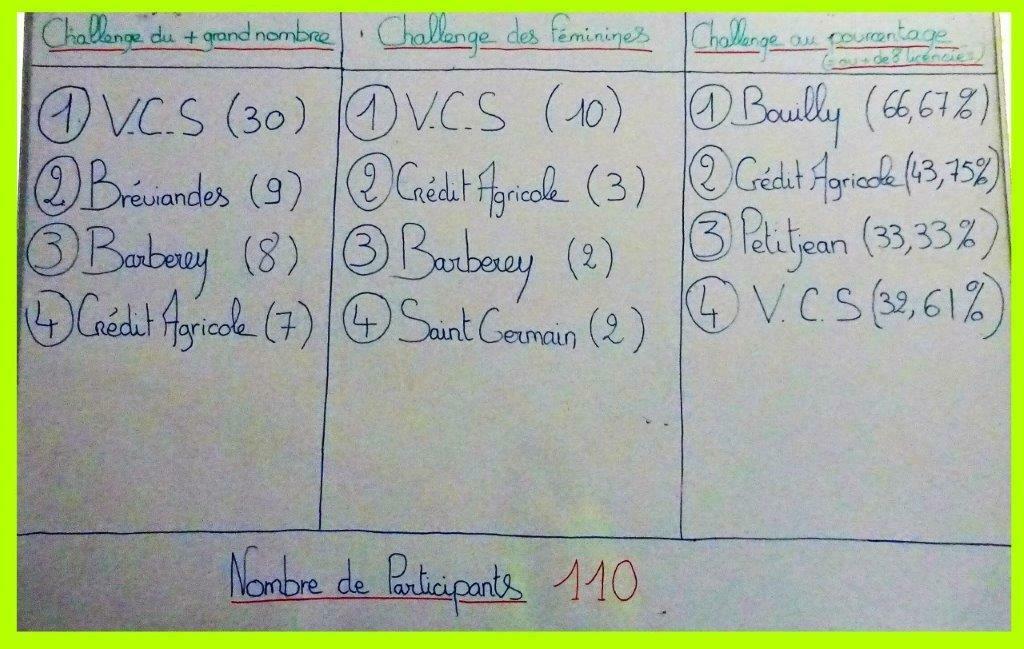 Challenge du + grand nombre
① V.C.S (30)
② Bréviandes (9)
③ Barberey (8)
④ Crédit Agricole (7)
Challenge des Féminines
① V.C.S (10)
② Crédit Agricole (3)
③ Barberey (2)
④ Saint Germain (2)
Challenge au pourcentage
(= ou + de 8 licenciés)
① Bouilly (66,67%)
② Crédit Agricole (43,75%)
③ Petitjean (33,33%)
④ V.C.S (32,61%)
Nombre de Participants 110